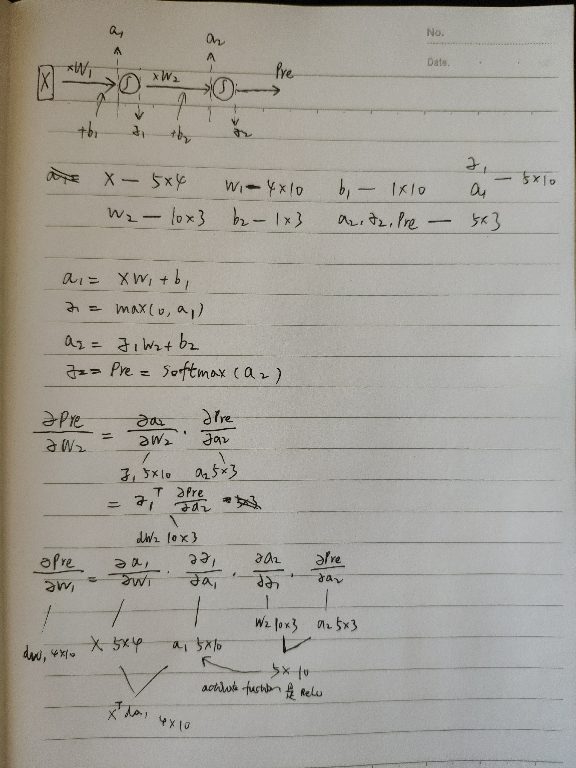 No.
Date.
a₁ a₂
X ×W₁ ∫ ×W₂ ∫ Pre
+b₁ z₁ +b₂ z₂
X — 5×4 W₁ — 4×10 b₁ — 1×10 z₁ a₁ — 5×10
W₂ — 10×3 b₂ — 1×3 a₂, z₂, Pre — 5×3
a₁ = XW₁ + b₁
z₁ = max(0, a₁)
a₂ = z₁W₂ + b₂
z₂ = Pre = Softmax(a₂)
∂Pre/∂W₂ = ∂a₂/∂W₂ · ∂Pre/∂a₂
z₁ 5×10 a₂ 5×3
= z₁ᵀ ∂Pre/∂a₂
dW₂ 10×3
∂Pre/∂W₁ = ∂a₁/∂W₁ · ∂z₁/∂a₁ · ∂a₂/∂z₁ · ∂Pre/∂a₂
W₂ 10×3 a₂ 5×3
dW₁ 4×10 X 5×4 a₁ 5×10
5×10
function 是 Relu
Xᵀda₁ 4×10